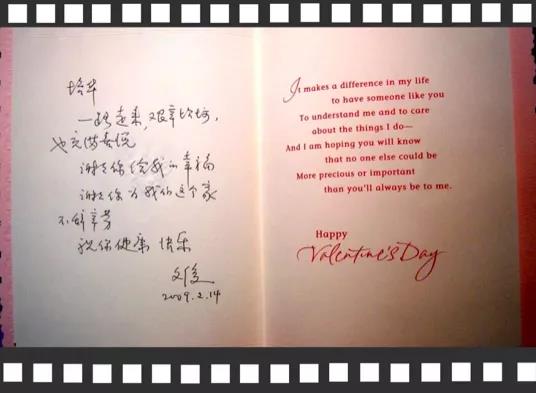 培华
一路走来，艰辛坎坷，
也充满喜悦
谢谢你给我的幸福
谢谢你为我们这个家
不辞辛劳
祝你健康 快乐
2009.2.14
It makes a difference in my life
to have someone like you
To understand me and to care
about the things I do—
And I am hoping you will know
that no one else could be
More precious or important
than you'll always be to me.
Happy
Valentine's Day